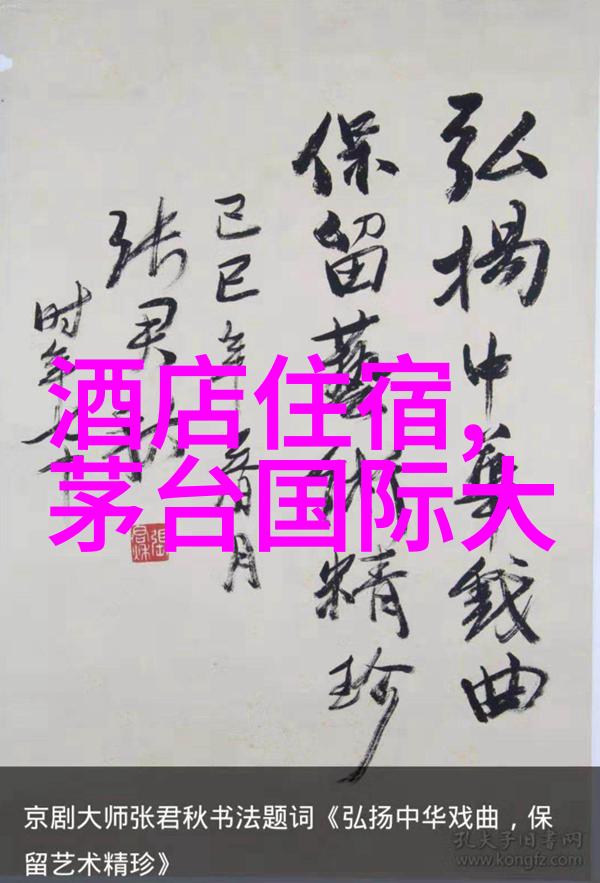 弘揚中華戲曲
保留藝術精珍
己巳年春月
张君秋
时年七十
酒店住宿,
茅台国际大
京剧大师张君秋书法题词《弘扬中华戏曲，保
留艺术精珍》
孔夫子旧书网
www.kongfz.com